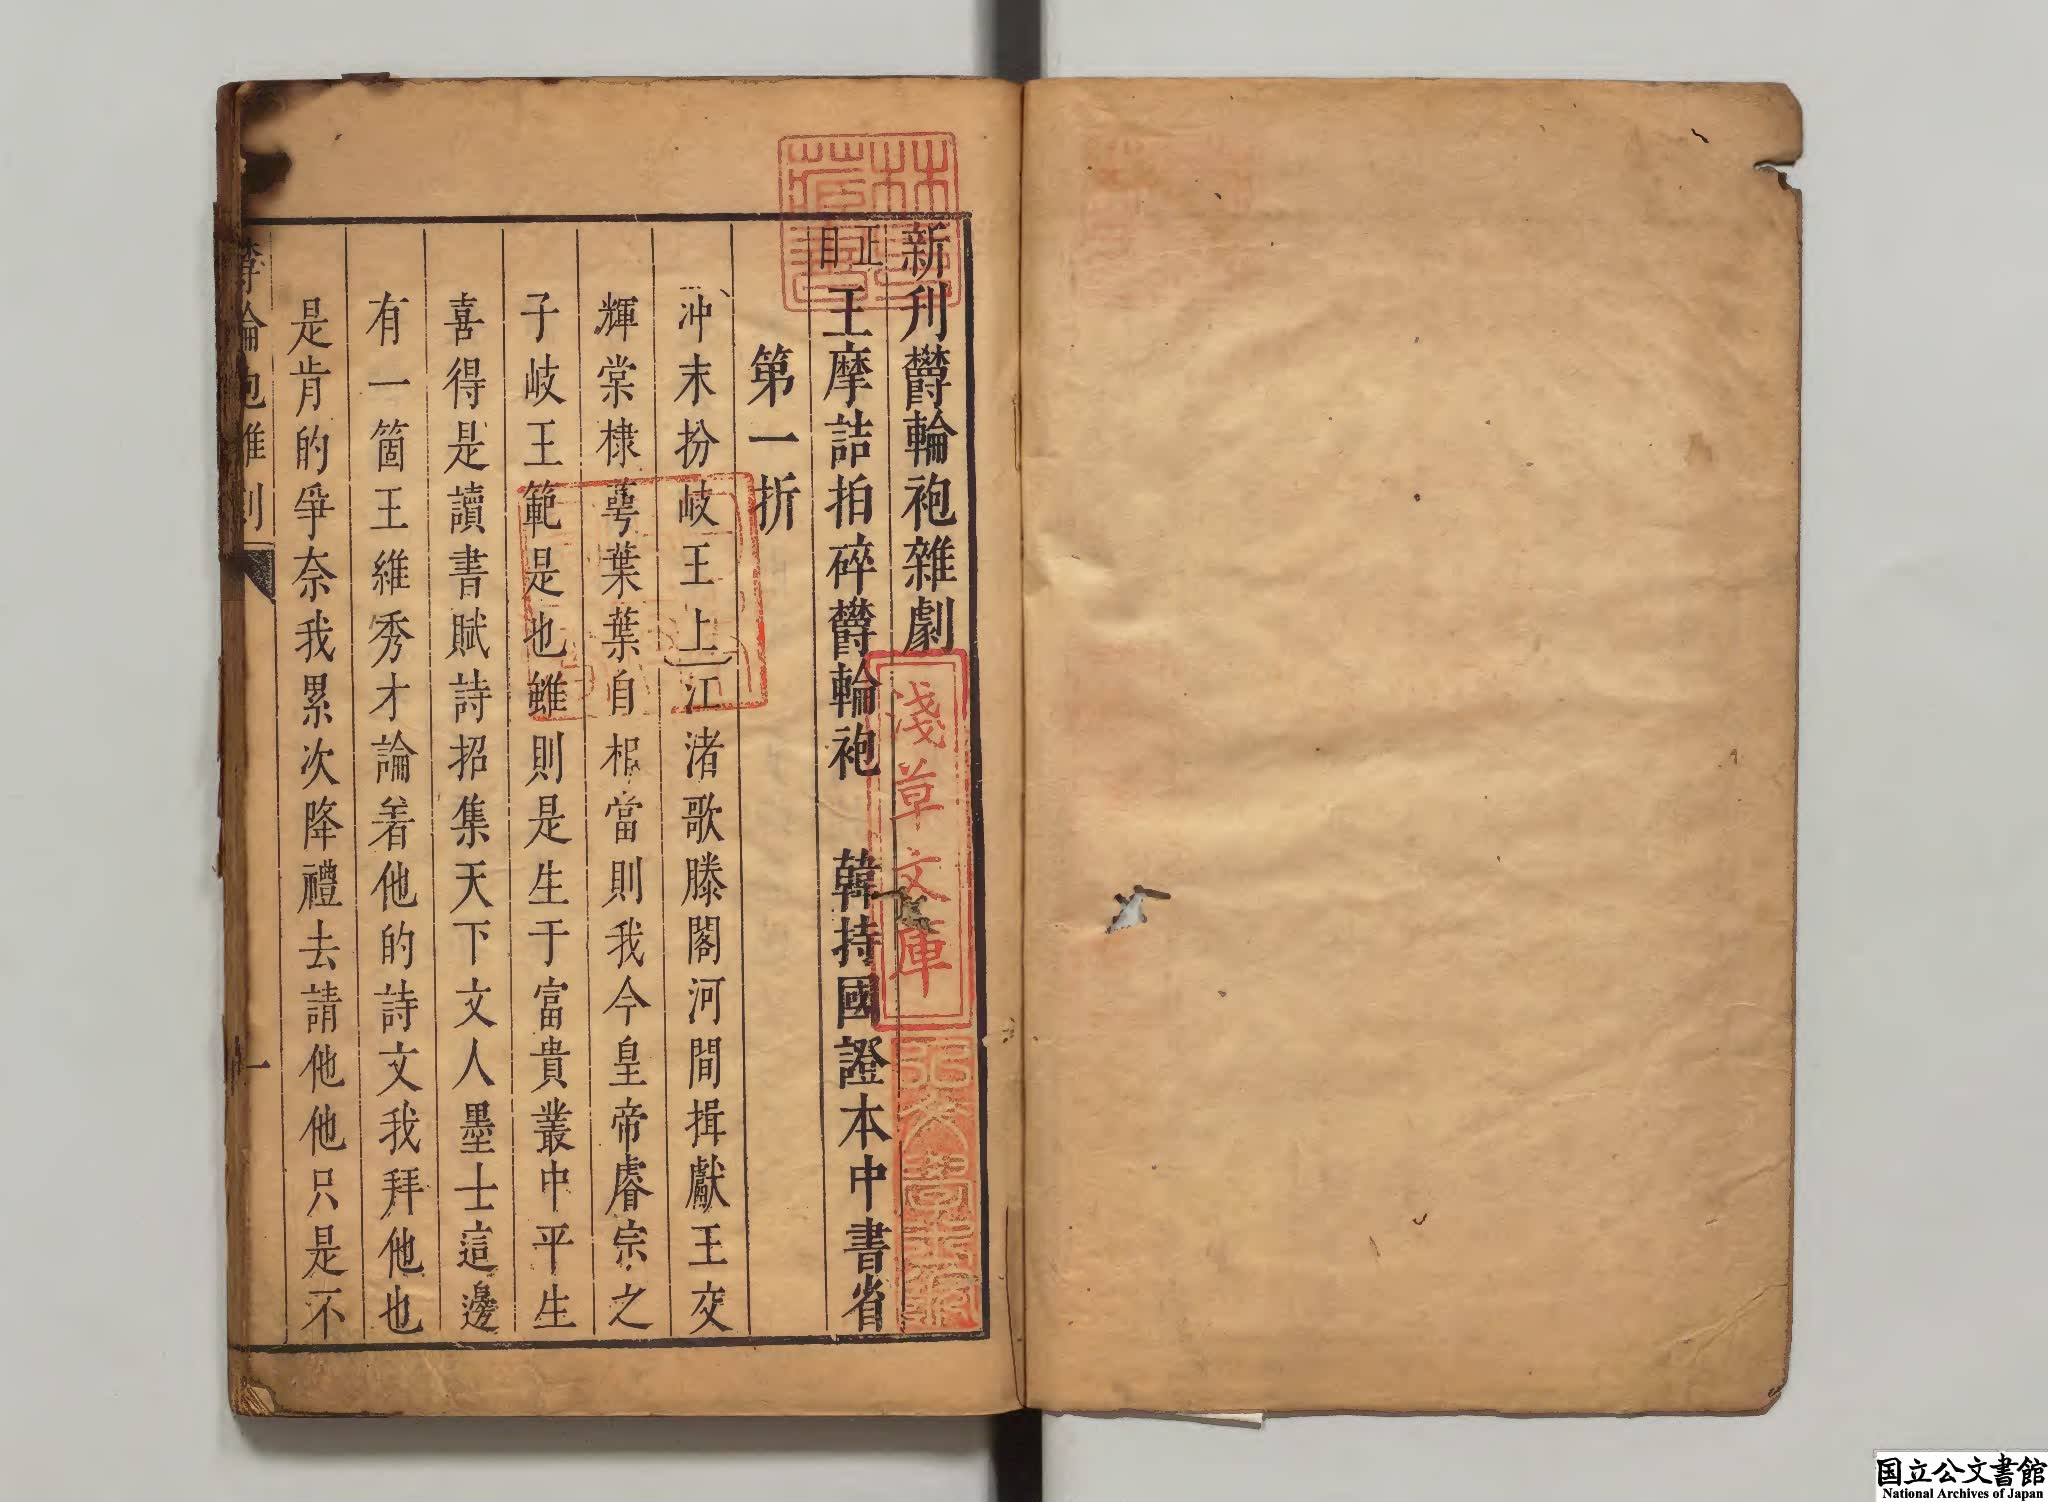 新刋欎輪袍雜劇
正目 王摩詰拍碎欎輪袍 韓持國證本中書省
第一折
冲末扮岐王上江渚歌滕閣河間揖獻王交
輝棠棣萼葉葉自相當則我今皇帝睿宗之
子岐王範是也雖則是生于富貴叢中平生
喜得是讀書賦詩招集天下文人墨士這邊
有一箇王維秀才論着他的詩文我拜他也
是肯的爭奈我累次降禮去請他他只是不
輪袍雜劇
一
林氏藏書
淺草文庫
国立公文書館
National Archives of Japan